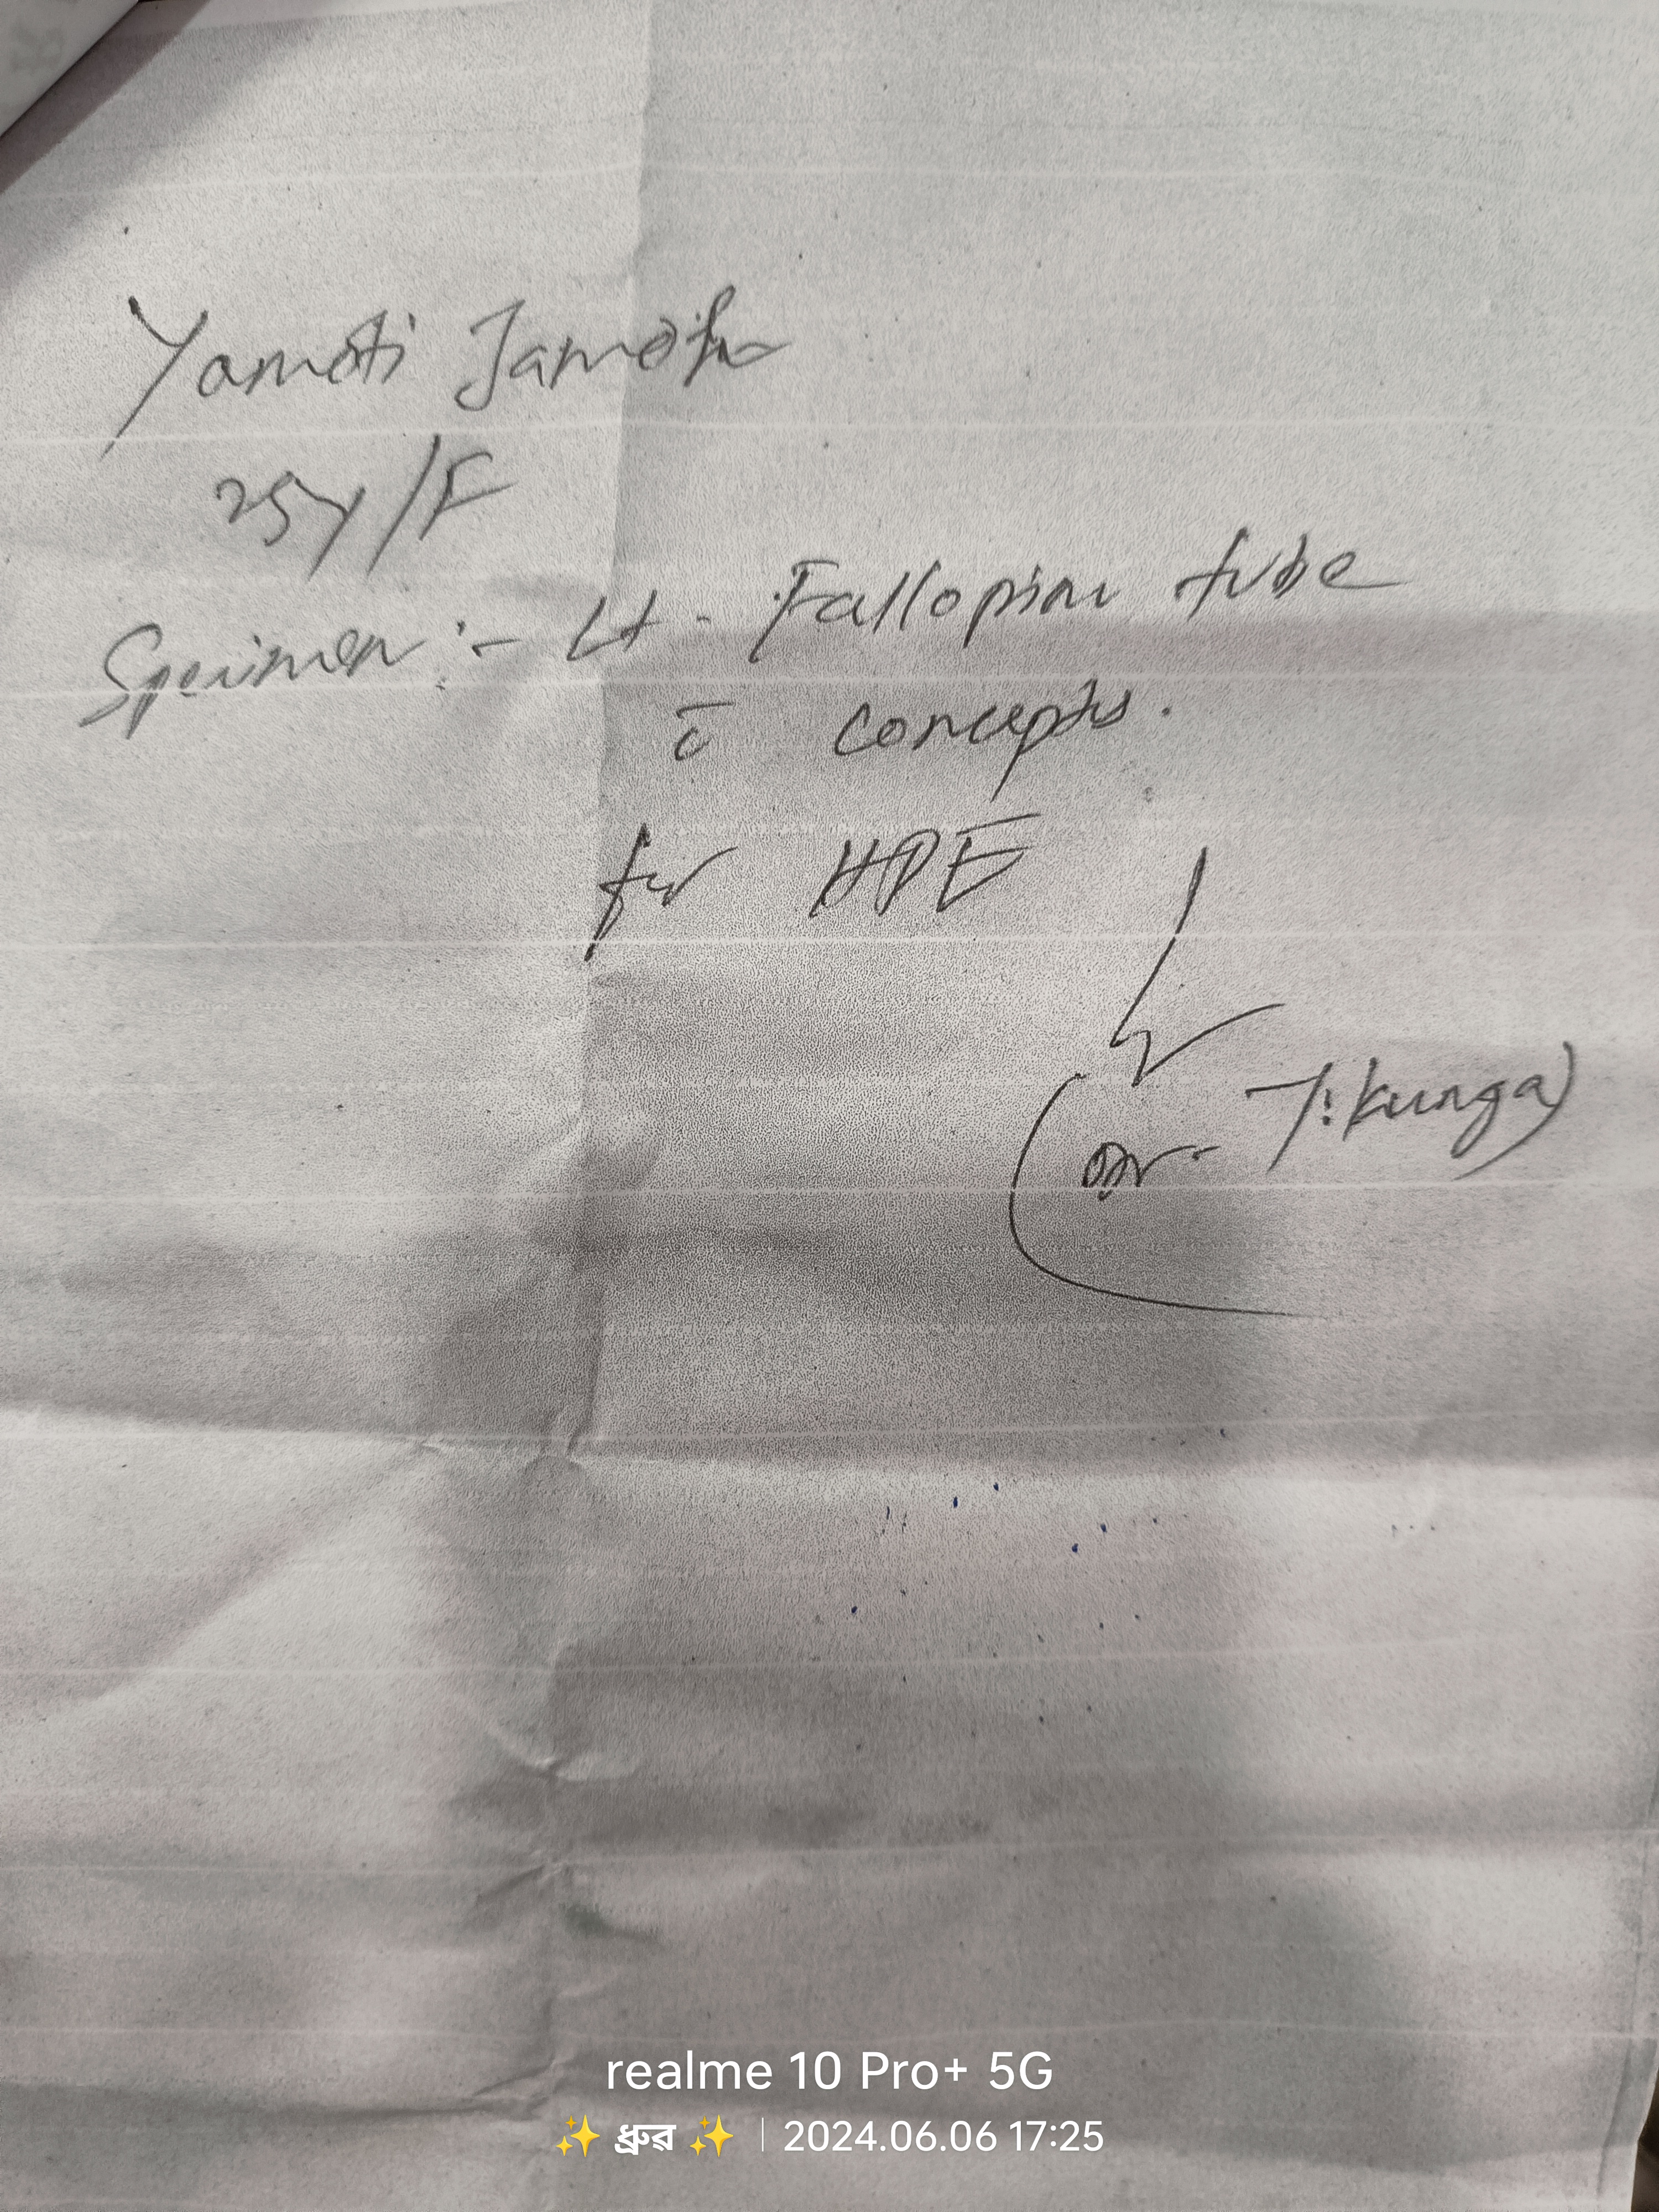 Yamoti Jamoh
25y/F
Specimen :- Lt. Fallopian tube
c̄ concepts.
for HPE
(Dr. T. Kunga)
realme 10 Pro+ 5G
✨ ধ্ৰুৱ ✨ | 2024.06.06 17:25